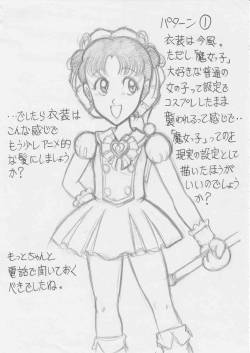 パターン①
衣装は今風。
ただし「魔女っ子」
大好きな普通の
女の子って設定で
コスプレしたまま
襲われるって感じで…
「魔女っ子」ってのを
現実の設定として
描いたほうが
いいのでしょう
か？
…でしたら衣装は
こんな感じで
もう少しアニメ的
な髪にしましょう
か？
もっとちゃんと
電話で聞いておく
べきでしたね。